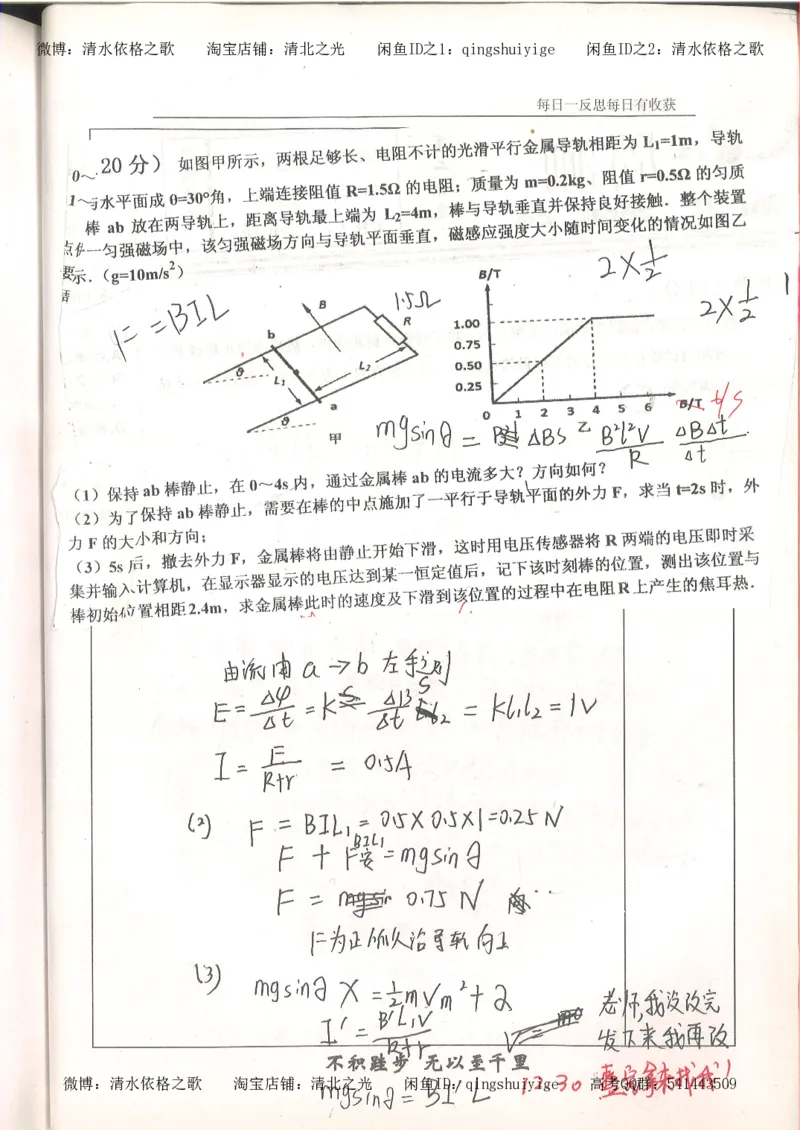 微博：清水依格之歌 淘宝店铺：清北之光 闲鱼ID之1：qingshuiyige 闲鱼ID之2：清水依格之歌
每日一反思每日有收获
0～ 20分） 如图甲所示，两根足够长、电阻不计的光滑平行金属导轨相距为 L₁=1m，导轨
1～与水平面成 θ=30°角，上端连接阻值 R=1.5Ω 的电阻；质量为 m=0.2kg、阻值 r=0.5Ω 的匀质
棒 ab 放在两导轨上，距离导轨最上端为 L₂=4m，棒与导轨垂直并保持良好接触．整个装置
一匀强磁场中，该匀强磁场方向与导轨平面垂直，磁感应强度大小随时间变化的情况如图乙
示．（g=10m/s²）
2×1/2
2×1/2
1
F = BIL
B
1.5Ω
R
b
θ
L₁
L₂
a
θ
甲
B/T
1.00
0.75
0.50
0.25
0 1 2 3 4 5 6 B/T
t/s
乙
mgsinθ = ΔBS B²l²V/R ΔBΔt/Δt
（1）保持 ab 棒静止，在 0～4s 内，通过金属棒 ab 的电流多大？方向如何？
（2）为了保持 ab 棒静止，需要在棒的中点施加了一平行于导轨平面的外力 F，求当 t=2s 时，外
力 F 的大小和方向；
（3）5s 后，撤去外力 F，金属棒将由静止开始下滑，这时用电压传感器将 R 两端的电压即时采
集并输入计算机，在显示器显示的电压达到某一恒定值后，记下该时刻棒的位置，测出该位置与
棒初始位置相距 2.4m，求金属棒此时的速度及下滑到该位置的过程中在电阻 R 上产生的焦耳热．
a → b 左手
E = Δφ/Δt = K S ΔB/Δt S = KL₁L₂ = 1V
I = E/(R+r) = 0.5A
(2) F = BIL₁ = 0.5×0.5×1=0.25N
F + F安 = mgsinθ
BIL₁
F = 0.75 N
F 沿导轨向上
(3) mgsinθ X = ½mVm² + Q
I' = B'L₁V/(R+r)
老师，我没改完
发下来我再改
不积跬步 无以至千里
微博：清水依格之歌 淘宝店铺：清北之光 闲鱼ID：qingshuiyige 高考QQ群：541143509
mgsinθ = BI'L